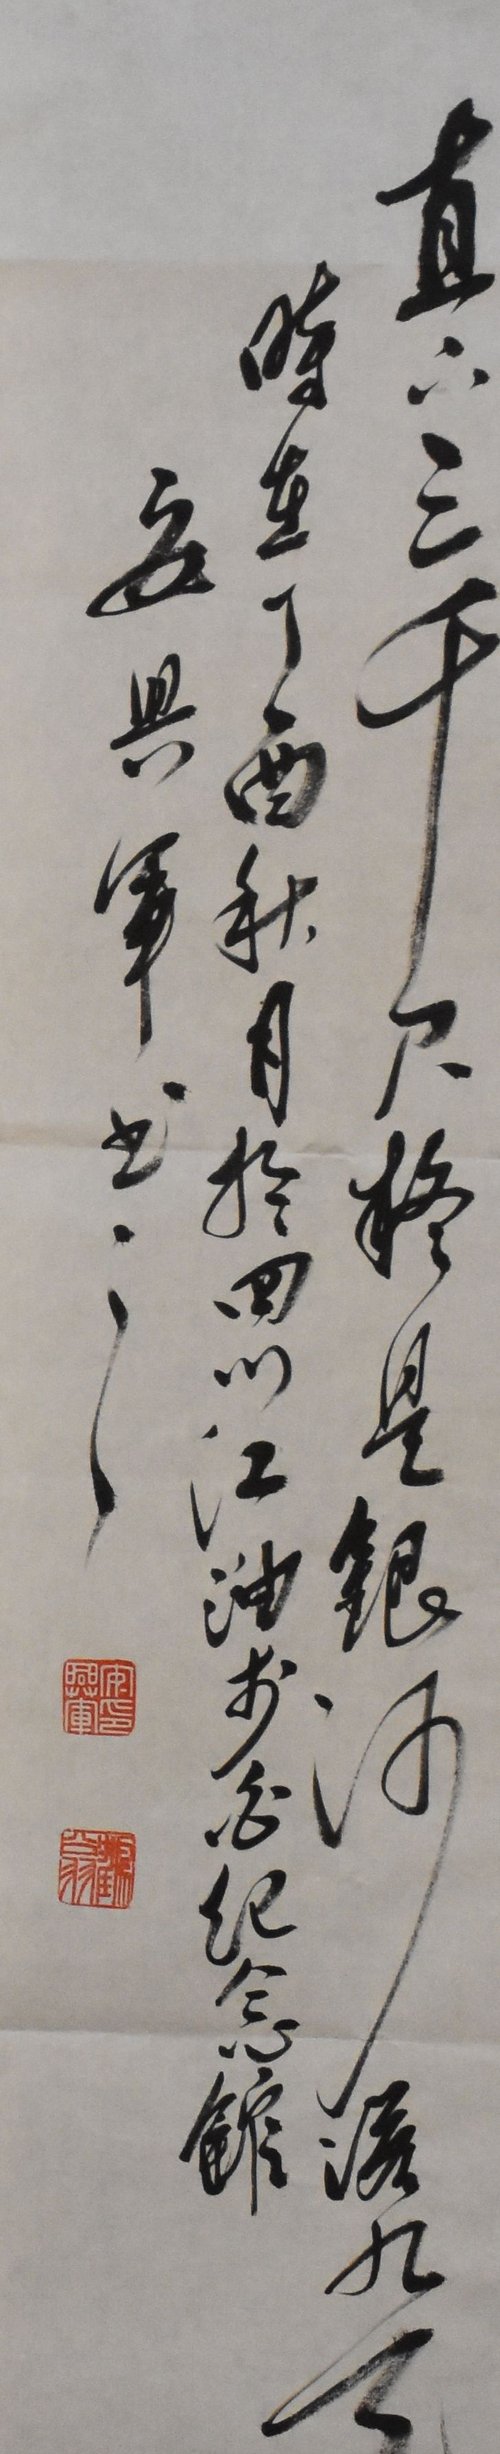 直下三千尺疑是銀河落九天
時在丁酉秋月於四川江油李白紀念館
安興軍书之
安興軍印